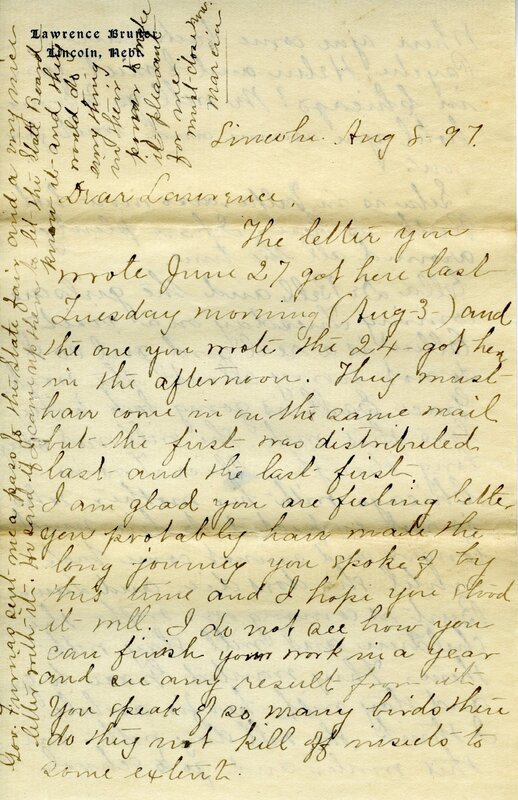 Lawrence Bruner
Lincoln, Nebr.
Lincoln Aug 8-97.
Dear Lawrence.
The letter you
wrote June 27 got here last
Tuesday morning (Aug-3-) and
the one you wrote the 24 got here
in the afternoon. They must
have come in on the same mail
but the first was distributed
last and the last first.
I am glad you are feeling better
you probably have made the
long journey you spoke of by
this time and I hope you stood
it well. I do not see how you
can finish your work in a year
and see any result from it.
You speak of so many birds there
do they not kill off insects to
some extent.
Gov. Furnas sent me a pass to the State Fair and a very nice
letter with it. He said if I came up there to let the State Board
know it- and they
would do
everything
in their
power to make
it pleasant
for me.
must close now.
Marcia